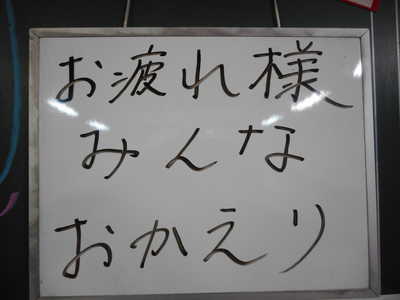 お疲れ様
みんな
おかえり